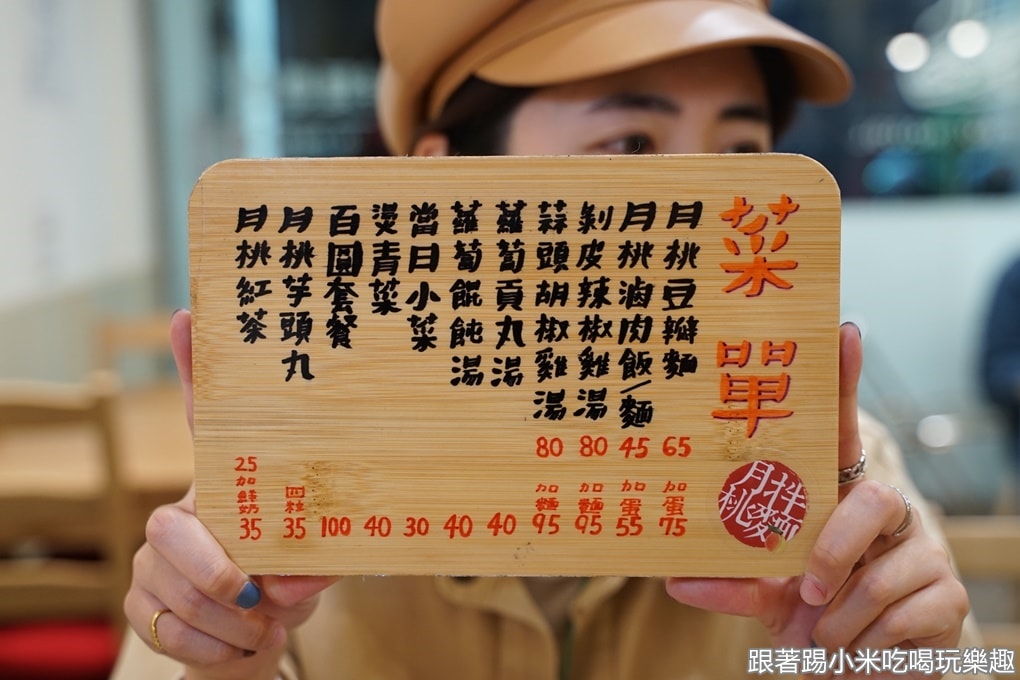 菜單
月桃拌麵
月桃豆瓣麵 65 加蛋 75
月桃滷肉飯/麵 45 加蛋 55
剝皮辣椒雞湯 80 加麵 95
蒜頭胡椒雞湯 80 加麵 95
蘿蔔貢丸湯 40
蘿蔔餛飩湯 40
當日小菜 30
燙青菜 40
百圓套餐 100
月桃芋頭丸 四粒 35
月桃紅茶 25 加鮮奶 35
跟著踢小米吃喝玩樂趣